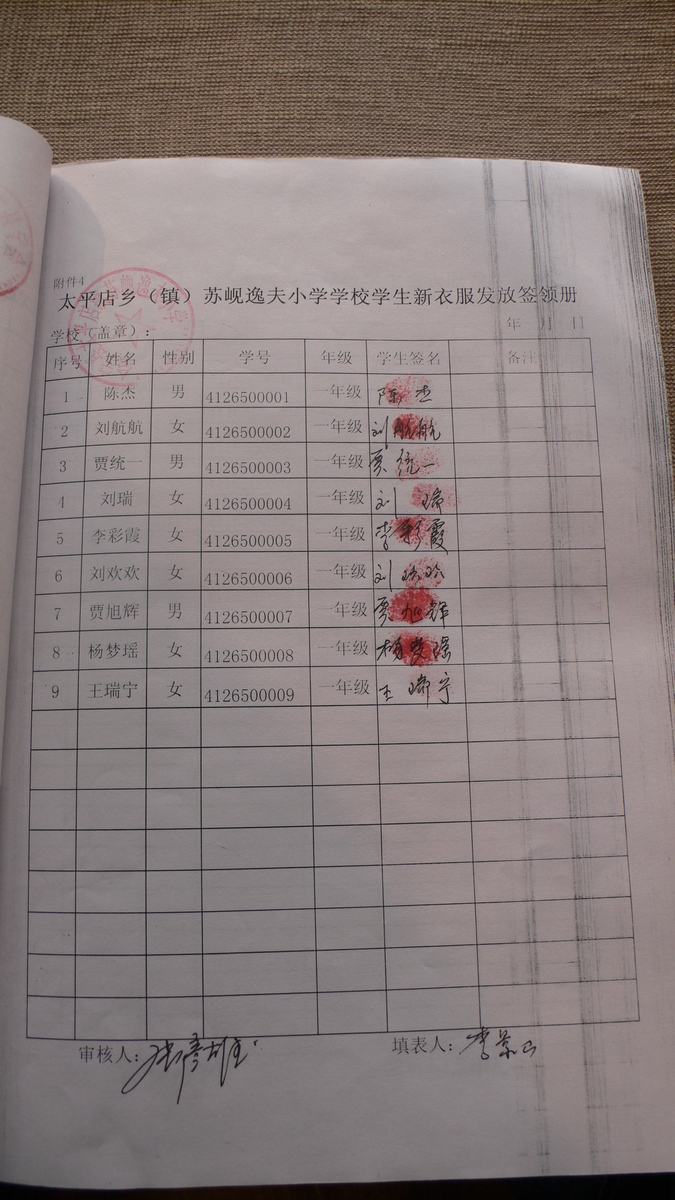 附件4
太平店乡（镇）苏岘逸夫小学学校学生新衣服发放签领册
学校（盖章）： 年 月 日
序号 姓名 性别 学号 年级 学生签名 备注
1 陈杰 男 4126500001 一年级 陈杰
2 刘航航 女 4126500002 一年级 刘航航
3 贾统一 男 4126500003 一年级 贾统一
4 刘瑞 女 4126500004 一年级 刘瑞
5 李彩霞 女 4126500005 一年级 李彩霞
6 刘欢欢 女 4126500006 一年级 刘欢欢
7 贾旭辉 男 4126500007 一年级 贾旭辉
8 杨梦瑶 女 4126500008 一年级 杨梦瑶
9 王瑞宁 女 4126500009 一年级 王瑞宁
审核人： 填表人：李景